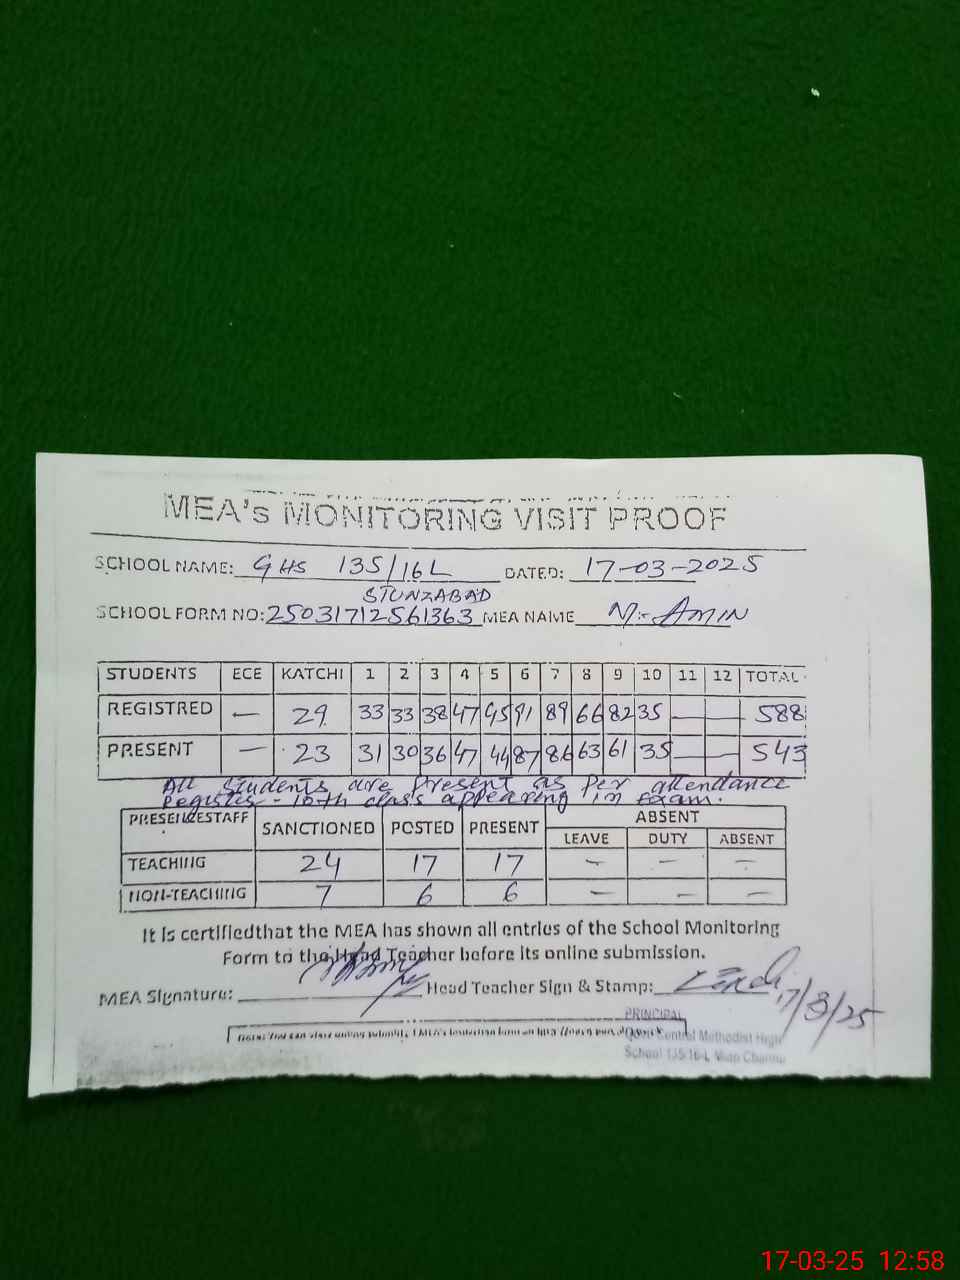 MEA's MONITORING VISIT PROOF
SCHOOL NAME: GHS 135/16L DATED: 17-03-2025
STUNZABAD
SCHOOL FORM NO: 25031712561363 MEA NAME M. AMIN
STUDENTS ECE KATCHI 1 2 3 4 5 6 7 8 9 10 11 12 TOTAL
REGISTRED — 29 33 33 38 47 45 91 89 66 82 35 — — 588
PRESENT — 23 31 30 36 47 44 87 86 63 61 35 — — 543
All students are present as per attendance
Register - 10th class appearing in exam.
PRESENCE STAFF SANCTIONED POSTED PRESENT ABSENT
LEAVE DUTY ABSENT
TEACHING 24 17 17 — — —
NON-TEACHING 7 6 6 — — —
It is certifiedthat the MEA has shown all entries of the School Monitoring
Form to the Head Teacher before its online submission.
MEA Signature: Head Teacher Sign & Stamp: 17/3/25
PRINCIPAL
Central Methodist High
School 135/16-L Mian Channu
17-03-25 12:58